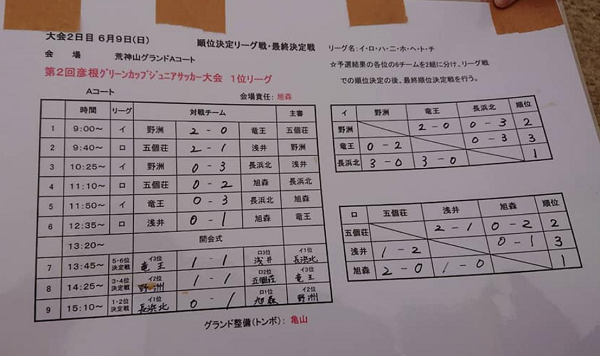 大会2日目 6月9日(日) 順位決定リーグ戦・最終決定戦 リーグ名:イ・ロ・ハ・ニ・ホ・ヘ・ト・チ
会 場 荒神山グランドAコート ☆予選結果の各位の6チームを2組に分け、リーグ戦
での順位決定の後、最終順位決定戦を行う。
第2回彦根グリーンカップジュニアサッカー大会 1位リーグ
Aコート 会場責任: 旭森
時間 リーグ 対戦チーム 主審
1 9:00~ イ 野洲 2 - 0 竜王 五個荘
2 9:40~ ロ 五個荘 2 - 1 浅井 野洲
3 10:25~ イ 野洲 0 - 3 長浜北 浅井
4 11:10~ ロ 五個荘 0 - 2 旭森 長浜北
5 11:50~ イ 竜王 0 - 3 長浜北 旭森
6 12:35~ ロ 浅井 0 - 1 旭森 竜王
13:20~ 開会式
7 13:45~ 5-6位決定戦 イ3位 竜王 1 - 1 ロ3位 浅井 イ1位 長浜北
8 14:25~ 3-4位決定戦 イ2位 野洲 1 - 1 ロ2位 五個荘 イ3位 竜王
9 15:10~ 1-2位決定戦 イ1位 長浜北 0 - 1 ロ1位 旭森 イ2位 野洲
グランド整備(トンボ): 亀山
イ 野洲 竜王 長浜北 順位
野洲 2 - 0 0 - 3 2
竜王 0 - 2 0 - 3 3
長浜北 3 - 0 3 - 0 1
ロ 五個荘 浅井 旭森 順位
五個荘 2 - 1 0 - 2 2
浅井 1 - 2 0 - 1 3
旭森 2 - 0 1 - 0 1